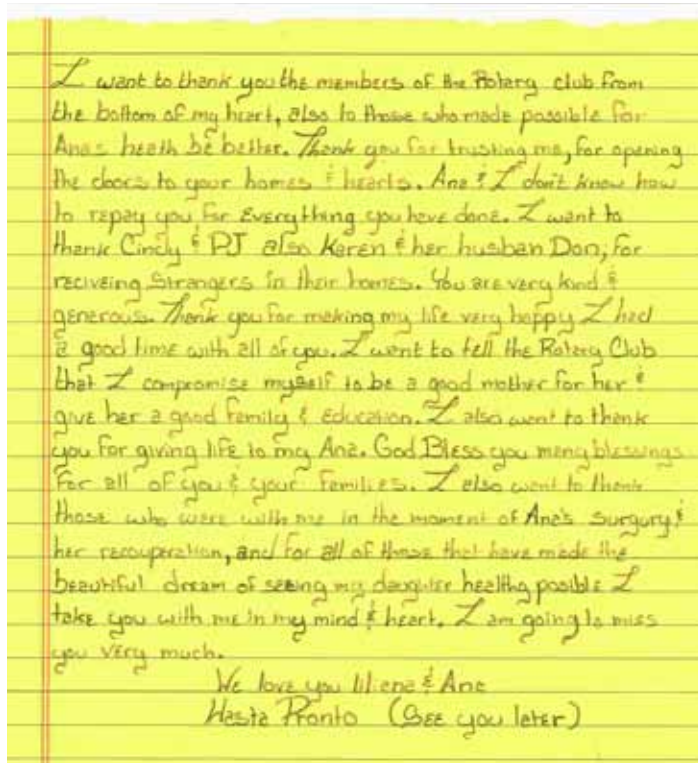 I want to thank you the members of the Rotary club from
the bottom of my heart, also to those who made possible for
Ana's heath be better. Thank you for trusting me, for opening
the doors to your homes & hearts. Ana & I don't know how
to repay you for Everything you have done. I want to
thank Cindy & PJ also Karen & her husban Don, for
reciveing strangers in their homes. You are very kind &
generous. Thank you for making my life very happy I had
a good time with all of you. I want to tell the Rotary Club
that I compromise myself to be a good mother for her &
give her a good family & Education. I also want to thank
you for giving life to my Ana. God Bless you many blessings
for all of you & your families. I also want to thank
those who were with me in the moment of Ana's surgury &
her recouperation, and for all of those that have made the
beautiful dream of seeing my daughter healthy posible I
take you with me in my mind & heart. I am going to miss
you very much.
We love you liliana & Ana
Hasta Pronto (See you later)